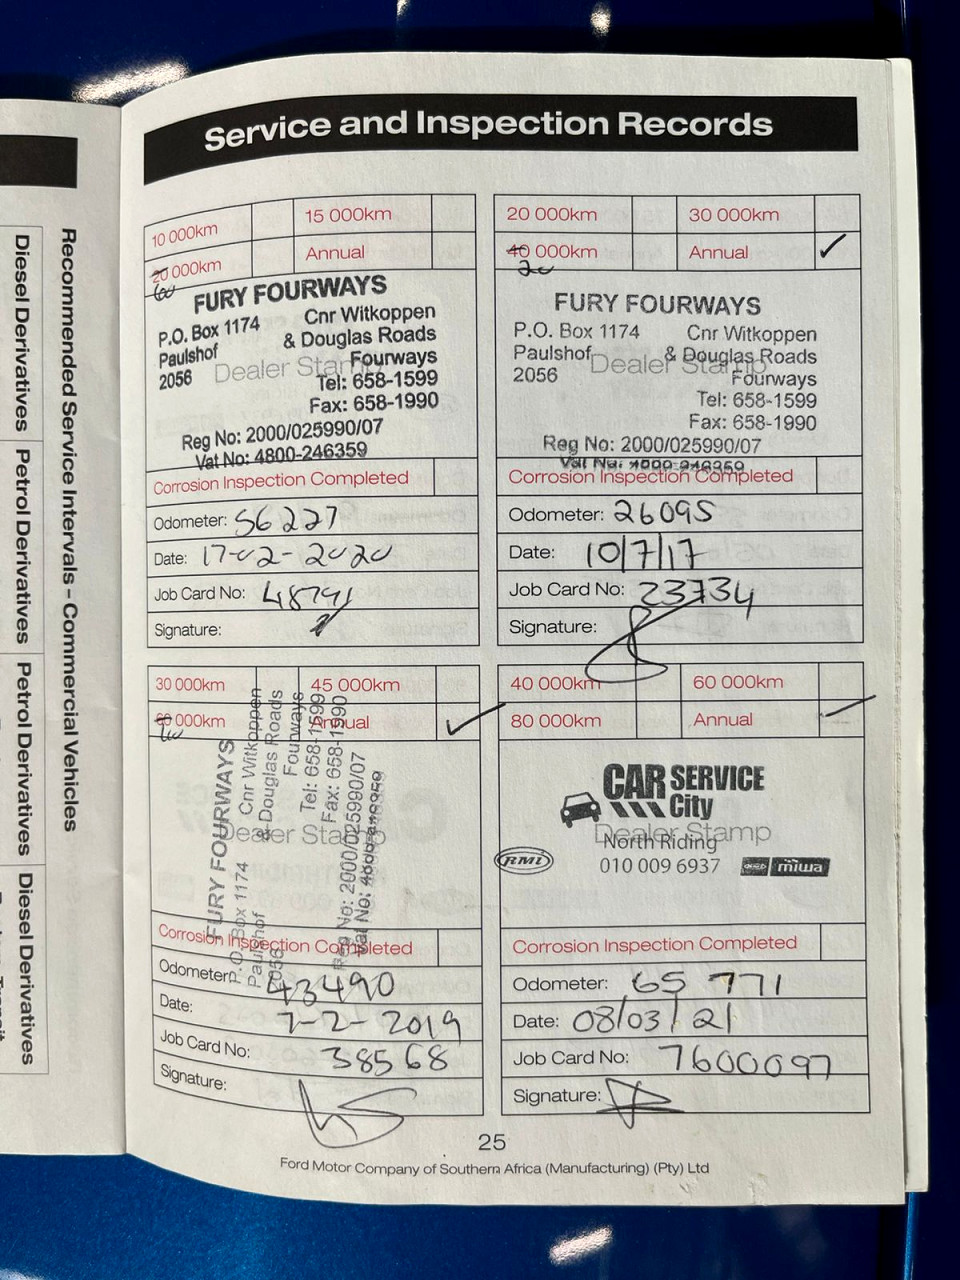 Service and Inspection Records
10 000km 15 000km
20 000km Annual
60
FURY FOURWAYS
P.O. Box 1174 Cnr Witkoppen
Paulshof & Douglas Roads
2056 Fourways
Dealer Stamp
Tel: 658-1599
Fax: 658-1990
Reg No: 2000/025990/07
Vat No: 4800-246359
Corrosion Inspection Completed
Odometer: 56227
Date: 17-02-2020
Job Card No: 48791
Signature:
20 000km 30 000km
40 000km Annual ✓
20
FURY FOURWAYS
P.O. Box 1174 Cnr Witkoppen
Paulshof & Douglas Roads
2056 Fourways
Dealer Stamp
Tel: 658-1599
Fax: 658-1990
Reg No: 2000/025990/07
Vat No: 4800-246359
Corrosion Inspection Completed
Odometer: 26095
Date: 10/7/17
Job Card No: 23734
Signature:
30 000km 45 000km
60 000km Annual ✓
FURY FOURWAYS
P.O. Box 1174 Cnr Witkoppen
Paulshof & Douglas Roads
2056 Fourways
Tel: 658-1599
Fax: 658-1990
Reg No: 2000/025990/07
Vat No: 4800-246359
Dealer Stamp
Corrosion Inspection Completed
Odometer: 43490
Date: 7-2-2019
Job Card No: 38568
Signature:
40 000km 60 000km
80 000km Annual ✓
CAR SERVICE
City
Dealer Stamp
North Riding
RMI 010 009 6937 miwa
Corrosion Inspection Completed
Odometer: 65 771
Date: 08/03/21
Job Card No: 7600097
Signature:
25
Ford Motor Company of Southern Africa (Manufacturing) (Pty) Ltd
Recommended Service Intervals – Commercial Vehicles
Diesel Derivatives Petrol Derivatives Petrol Derivatives Diesel Derivatives